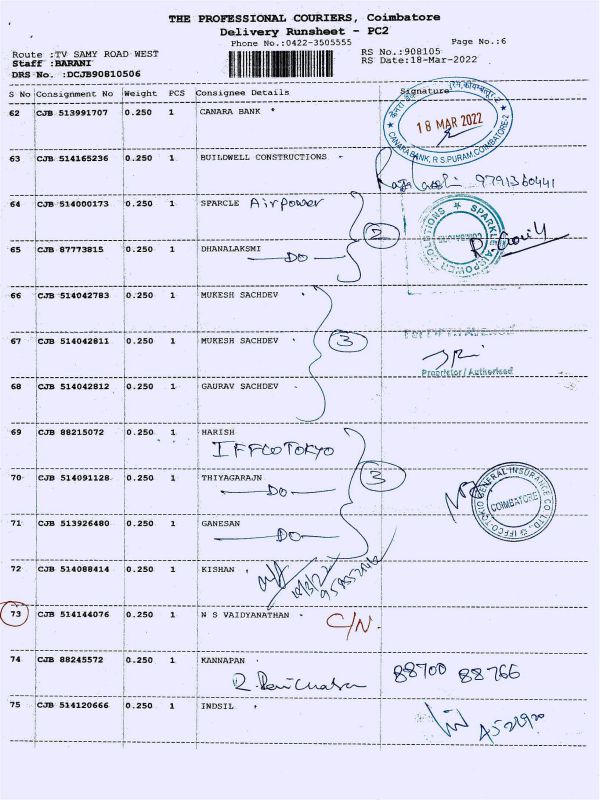 THE PROFESSIONAL COURIERS, Coimbatore
Delivery Runsheet - PC2
Phone No.:0422-3505555
Page No.:6
Route :TV SAMY ROAD WEST
RS No.:908105
Staff :BARANI
RS Date:18-Mar-2022
DRS No. :DCJB90810506
S No Consignment No Weight PCS Consignee Details Signature
62 CJB 513991707 0.250 1 CANARA BANK
18 MAR 2022
CANARA BANK, R S PURAM, COIMBATORE-2
63 CJB 514165236 0.250 1 BUILDWELL CONSTRUCTIONS
9791360441
64 CJB 514000173 0.250 1 SPARCLE Airpower
2
SPARKLE AIRPOWER SOLUTIONS
65 CJB 87773815 0.250 1 DHANALAKSMI
DO
66 CJB 514042783 0.250 1 MUKESH SACHDEV
67 CJB 514042811 0.250 1 MUKESH SACHDEV
3
Proprietor / Authorised
68 CJB 514042812 0.250 1 GAURAV SACHDEV
69 CJB 88215072 0.250 1 HARISH
IFFCO TOKYO
70 CJB 514091128 0.250 1 THIYAGARAJN
DO
3
IFFCO-TOKIO GENERAL INSURANCE CO. LTD.
COIMBATORE
71 CJB 513926480 0.250 1 GANESAN
DO
72 CJB 514088414 0.250 1 KISHAN
73 CJB 514144076 0.250 1 N S VAIDYANATHAN C/N.
74 CJB 88245572 0.250 1 KANNAPAN
88700 88766
75 CJB 514120666 0.250 1 INDSIL